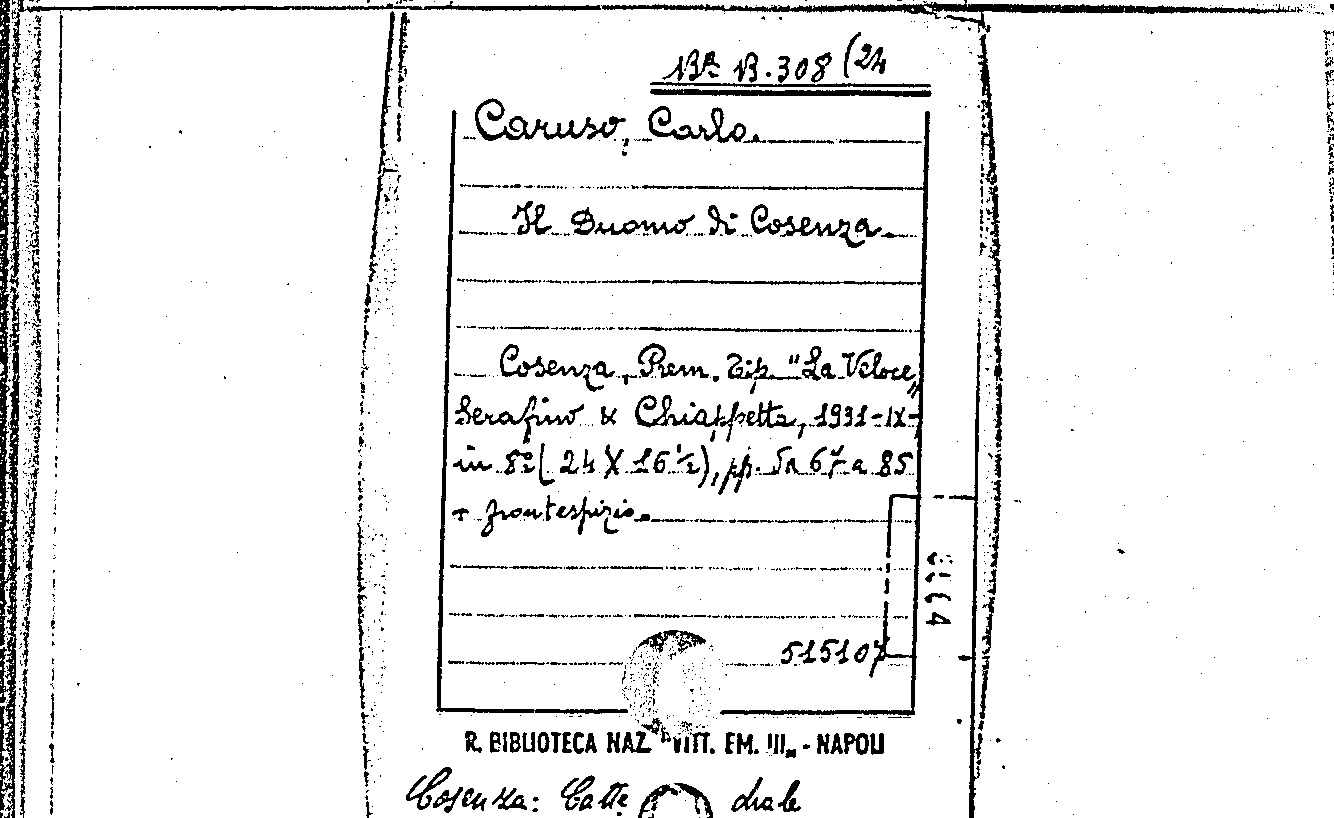 Bª B.308 (24
Caruso, Carlo.
Il Duomo di Cosenza.
Cosenza, Prem. Tip. "La Veloce„
Serafino & Chiappetta, 1931-IX-,
in 8º (24 X 16 ½), pp. da 67 a 85
+ frontespizio.
515107
R. BIBLIOTECA NAZ. "VITT. EM. III„ - NAPOLI
Cosenza: Catte drale